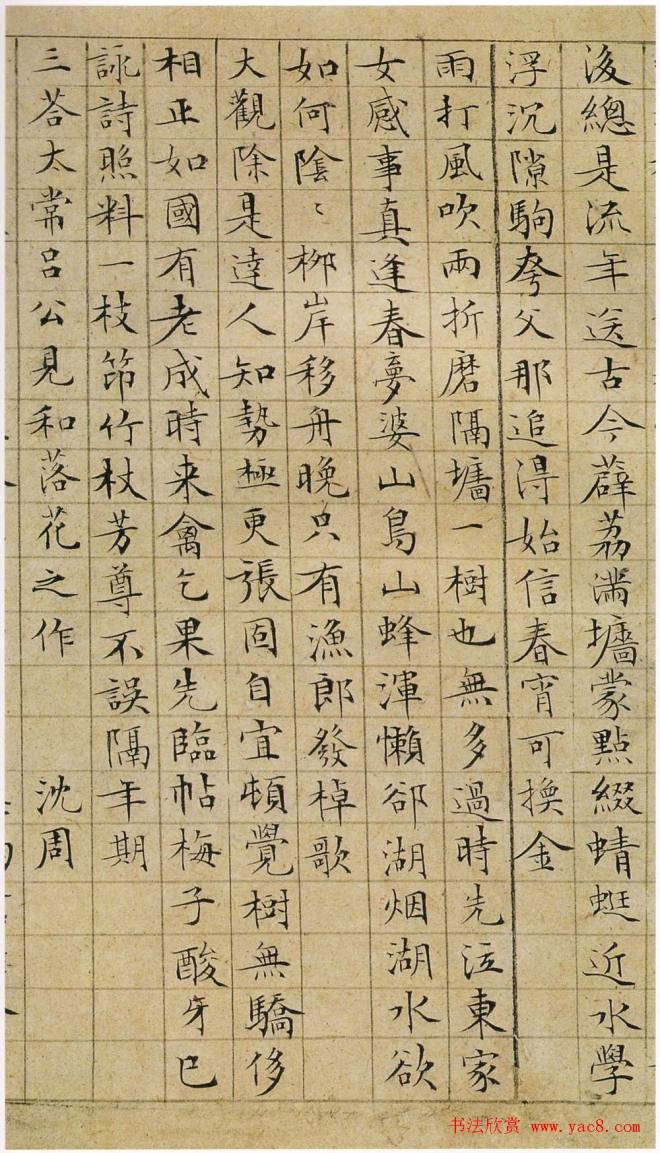 後總是流年送古今薜荔滿墻蒙點綴蜻蜓近水學
浮沉隙駒夸父那追得始信春宵可換金
雨打風吹兩折磨隔墻一樹也無多過時先泣東家
女感事真逢春夢婆山鳥山蜂渾懶郤湖烟湖水欲
如何陰〻柳岸移舟晚只有漁郎發棹歌
大觀除是達人知勢極更張固自宜頓覺樹無驕侈
相正如國有老成時来禽乞果先臨帖梅子酸牙巳
詠詩照料一枝笻竹杖芳尊不誤隔年期
三荅太常呂公見和落花之作 沈周
书法欣赏 www.yac8.com